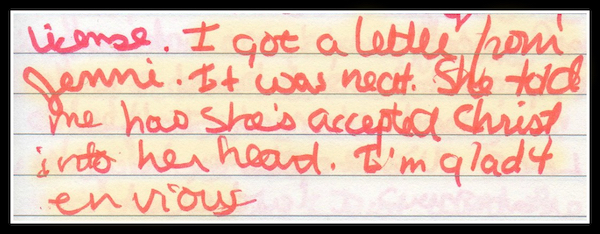 license. I got a letter from
Jenni. It was neat. She told
me how she's accepted Christ
into her heart. I'm glad &
envious